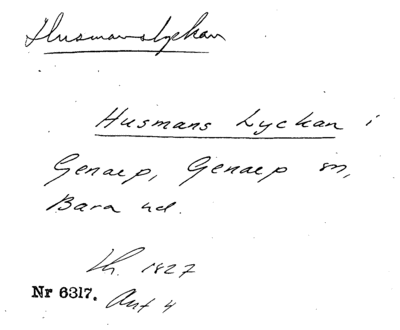 Husmanslyckan
Husmans Lyckan i
Genarp, Genarp sn,
Bara hd.
Lh. 1827
Nr 6317. Akt 4